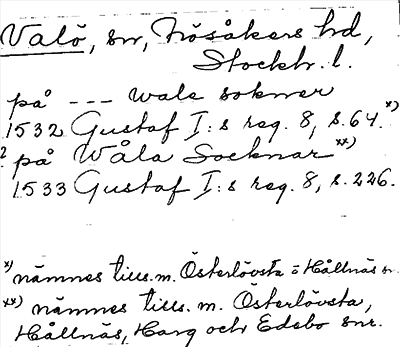 Valö, sn, Frösåkers hd,
Stockh. l.
på --- wale sokner
1532 Gustaf I:s reg. 8, s. 64. x)
? på Wåla Socknar xx)
1533 Gustaf I:s reg. 8, s. 226.
x) nämnes tills. m. Österlövsta o Hållnäs sn.
xx) nämnes tills. m. Österlövsta,
Hållnäs, Harg och Edebo snr.